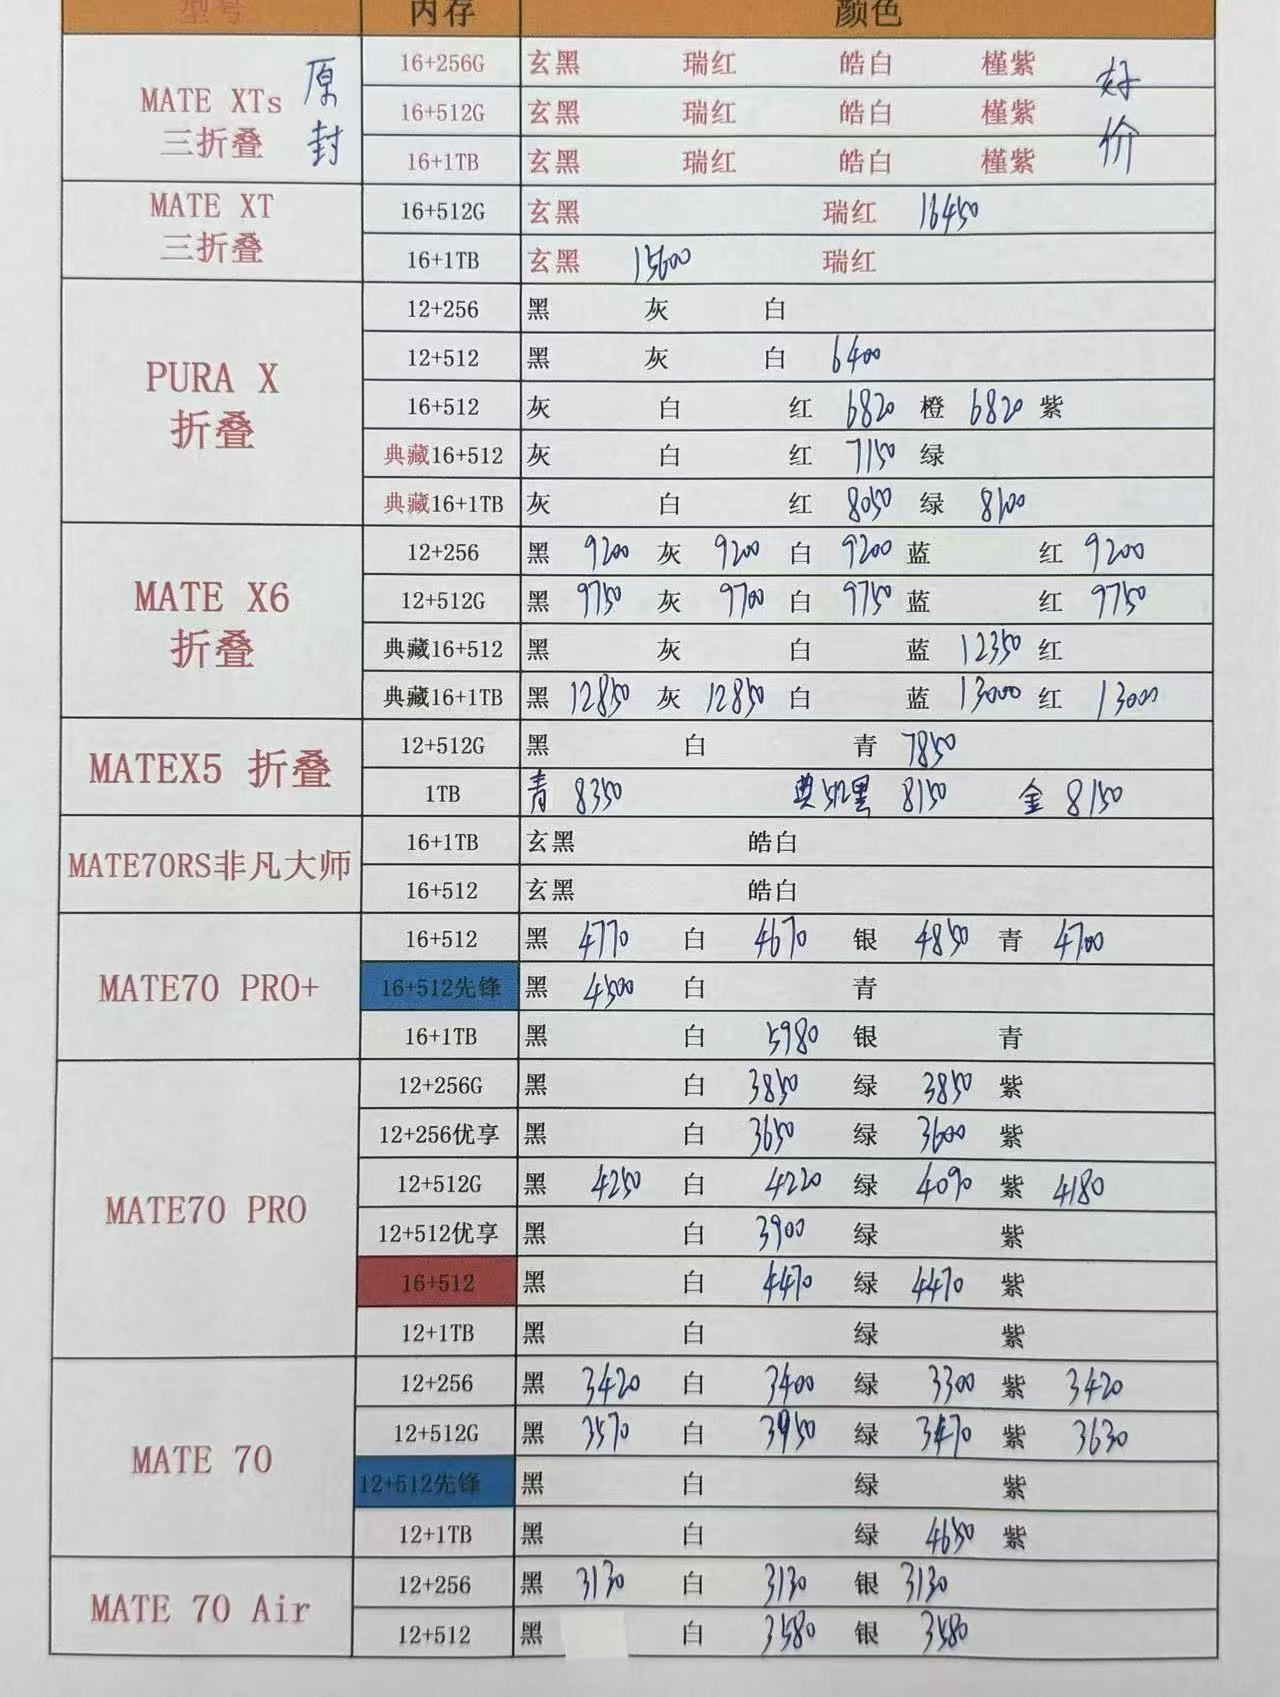 型号 内存 颜色
MATE XTs 三折叠 原封 16+256G 玄黑 瑞红 皓白 槿紫 好价
16+512G 玄黑 瑞红 皓白 槿紫
16+1TB 玄黑 瑞红 皓白 槿紫
MATE XT 三折叠 16+512G 玄黑 瑞红 16450
16+1TB 玄黑 15600 瑞红
PURA X 折叠 12+256 黑 灰 白
12+512 黑 灰 白 6400
16+512 灰 白 红 6820 橙 6820 紫
典藏16+512 灰 白 红 7150 绿
典藏16+1TB 灰 白 红 8050 绿 8100
MATE X6 折叠 12+256 黑 9200 灰 9200 白 9200 蓝 红 9200
12+512G 黑 9750 灰 9700 白 9750 蓝 红 9750
典藏16+512 黑 灰 白 蓝 12350 红
典藏16+1TB 黑 12850 灰 12850 白 蓝 13000 红 13000
MATEX5 折叠 12+512G 黑 白 青 7850
1TB 青 8350 典512黑 8150 金 8150
MATE70RS非凡大师 16+1TB 玄黑 皓白
16+512 玄黑 皓白
MATE70 PRO+ 16+512 黑 4770 白 4670 银 4850 青 4700
16+512先锋 黑 4500 白 青
16+1TB 黑 白 5980 银 青
MATE70 PRO 12+256G 黑 白 3850 绿 3850 紫
12+256优享 黑 白 3650 绿 3600 紫
12+512G 黑 4250 白 4220 绿 4090 紫 4180
12+512优享 黑 白 3900 绿 紫
16+512 黑 白 4470 绿 4470 紫
12+1TB 黑 白 绿 紫
MATE 70 12+256 黑 3420 白 3400 绿 3300 紫 3420
12+512G 黑 3570 白 绿 3470 紫 3630
12+512先锋 黑 白 绿 紫
12+1TB 黑 白 绿 4650 紫
MATE 70 Air 12+256 黑 3130 白 3130 银 3130
12+512 黑 白 3580 银 3580